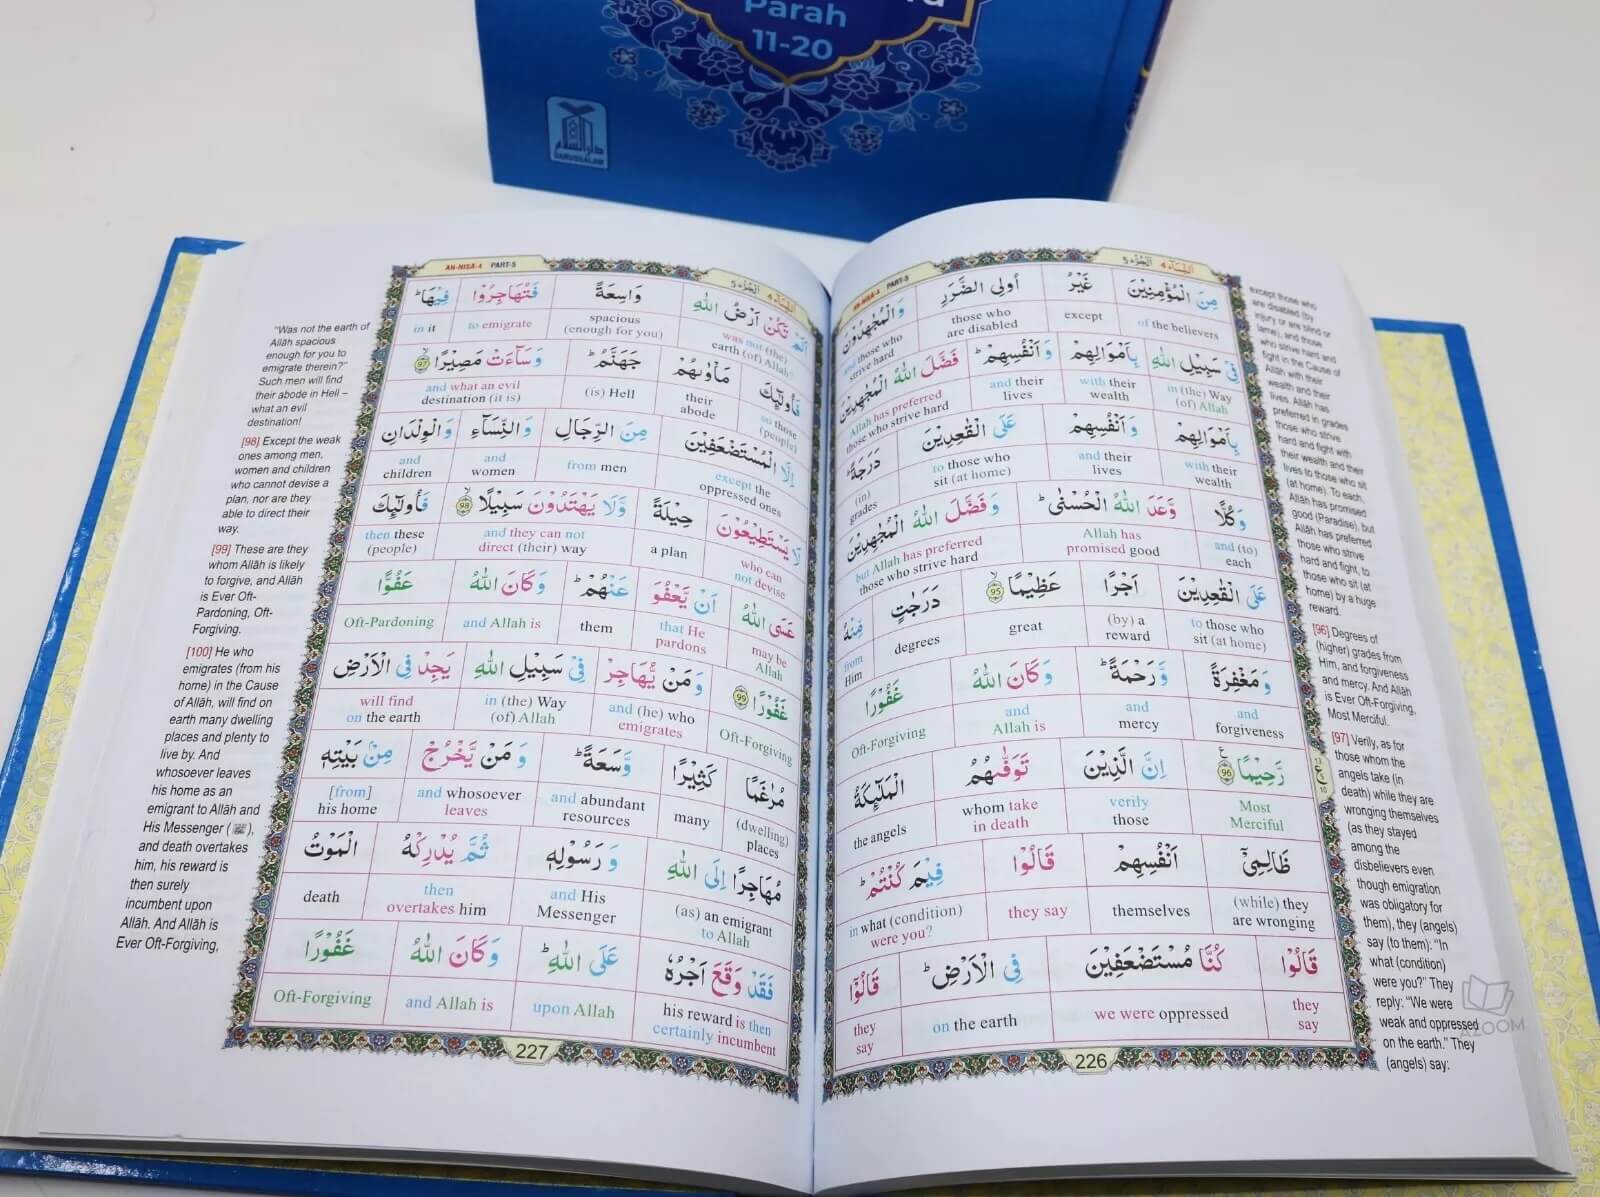 Parah
11-20
دار السلام
DARUSSALAM
AN-NISA-4 PART-5
اَلنِّسَاء 4 اَلْجُزْء 5
مِنَ الْمُؤْمِنِيْنَ غَيْرُ اُولِى الضَّرَرِ وَالْمُجٰهِدُوْنَ
of the believers except those who are disabled and those who strive hard
فِىْ سَبِيْلِ اللّٰهِ بِاَمْوَالِهِمْ وَاَنْفُسِهِمْ ؕ فَضَّلَ اللّٰهُ الْمُجٰهِدِيْنَ
in (the) Way (of) Allah with their wealth and their lives Allah has preferred those who strive hard
بِاَمْوَالِهِمْ وَاَنْفُسِهِمْ عَلَى الْقٰعِدِيْنَ دَرَجَةً ؕ
with their wealth and their lives to those who sit (at home) (in) grades
وَكُلًّا وَّعَدَ اللّٰهُ الْحُسْنٰى ؕ وَفَضَّلَ اللّٰهُ الْمُجٰهِدِيْنَ
and (to) each Allah has promised good but Allah has preferred those who strive hard
عَلَى الْقٰعِدِيْنَ اَجْرًا عَظِيْمًا 95 دَرَجٰتٍ مِّنْهُ
to those who sit (at home) (by) a reward great degrees from Him
وَمَغْفِرَةً وَّرَحْمَةً ؕ وَكَانَ اللّٰهُ غَفُوْرًا
and forgiveness and mercy and Allah is Oft-Forgiving
رَّحِيْمًا 96 اِنَّ الَّذِيْنَ تَوَفّٰىهُمُ الْمَلٰٓئِكَةُ
Most Merciful verily those whom take in death the angels
ظَالِمِىْٓ اَنْفُسِهِمْ قَالُوْا فِيْمَ كُنْتُمْ ؕ
(while) they are wronging themselves they say in what (condition) were you?
قَالُوْا كُنَّا مُسْتَضْعَفِيْنَ فِى الْاَرْضِ ؕ قَالُوْٓا
they say we were oppressed on the earth they say
226
except those who
are disabled (by
injury or are blind or
lame), and those
who strive hard and
fight in the Cause of
Allâh with their
wealth and their
lives. Allâh has
preferred in grades
those who strive
hard and fight with
their wealth and their
lives to those who sit
(at home). To each,
Allâh has promised
good (Paradise), but
Allâh has preferred
those who strive
hard and fight, to
those who sit (at
home) by a huge
reward.
[96] Degrees of
(higher) grades from
Him, and forgiveness
and mercy. And Allâh
is Ever Oft-Forgiving,
Most Merciful.
[97] Verily, as for
those whom the
angels take (in
death) while they are
wronging themselves
(as they stayed
among the
disbelievers even
though emigration
was obligatory for
them), they (angels)
say (to them): "In
what (condition)
were you?" They
reply: "We were
weak and oppressed
on the earth." They
(angels) say:
AZOOM
AN-NISA-4 PART-5
اَلنِّسَاء 4 اَلْجُزْء 5
اَلَمْ تَكُنْ اَرْضُ اللّٰهِ وَاسِعَةً فَتُهَاجِرُوْا فِيْهَا ؕ
was not (the) earth (of) Allah spacious (enough for you) to emigrate in it
فَاُولٰٓئِكَ مَاْوٰىهُمْ جَهَنَّمُ ؕ وَسَآءَتْ مَصِيْرًا 97
so those (people) their abode (is) Hell and what an evil destination (it is)
اِلَّا الْمُسْتَضْعَفِيْنَ مِنَ الرِّجَالِ وَالنِّسَآءِ وَالْوِلْدَانِ
except the oppressed ones from men and women and children
لَا يَسْتَطِيْعُوْنَ حِيْلَةً وَّلَا يَهْتَدُوْنَ سَبِيْلًا 98 فَاُولٰٓئِكَ
who can not devise a plan and they can not direct (their) way then these (people)
عَسَى اللّٰهُ اَنْ يَّعْفُوَ عَنْهُمْ ؕ وَكَانَ اللّٰهُ عَفُوًّا
may be Allah that He pardons them and Allah is Oft-Pardoning
غَفُوْرًا 99 وَمَنْ يُّهَاجِرْ فِىْ سَبِيْلِ اللّٰهِ يَجِدْ فِى الْاَرْضِ
Oft-Forgiving and (he) who emigrates in (the) Way (of) Allah will find on the earth
مُرٰغَمًا كَثِيْرًا وَّسَعَةً ؕ وَمَنْ يَّخْرُجْ مِنْۢ بَيْتِهٖ
(dwelling) places many and abundant resources and whosoever leaves [from] his home
مُهَاجِرًا اِلَى اللّٰهِ وَرَسُوْلِهٖ ثُمَّ يُدْرِكْهُ الْمَوْتُ
(as) an emigrant to Allah and His Messenger then overtakes him death
فَقَدْ وَقَعَ اَجْرُهٗ عَلَى اللّٰهِ ؕ وَكَانَ اللّٰهُ غَفُوْرًا
his reward is then certainly incumbent upon Allah and Allah is Oft-Forgiving
227
"Was not the earth of
Allâh spacious
enough for you to
emigrate therein?"
Such men will find
their abode in Hell –
what an evil
destination!
[98] Except the weak
ones among men,
women and children
who cannot devise a
plan, nor are they
able to direct their
way.
[99] These are they
whom Allâh is likely
to forgive, and Allâh
is Ever Oft-
Pardoning, Oft-
Forgiving.
[100] He who
emigrates (from his
home) in the Cause
of Allâh, will find on
earth many dwelling
places and plenty to
live by. And
whosoever leaves
his home as an
emigrant to Allâh and
His Messenger (ﷺ),
and death overtakes
him, his reward is
then surely
incumbent upon
Allâh. And Allâh is
Ever Oft-Forgiving,